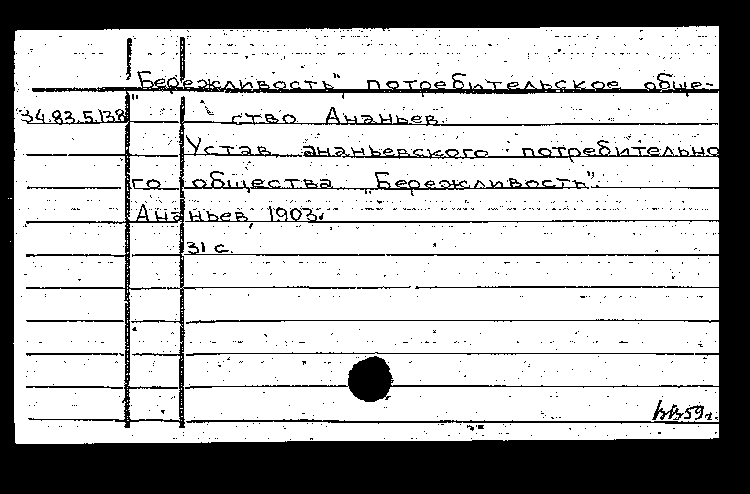 "Бережливость", потребительское обще-
34.83.5.138 ство Ананьев.
Устав ананьевского потребительно
го общества „Бережливость".
Ананьев, 1903.
31 с.